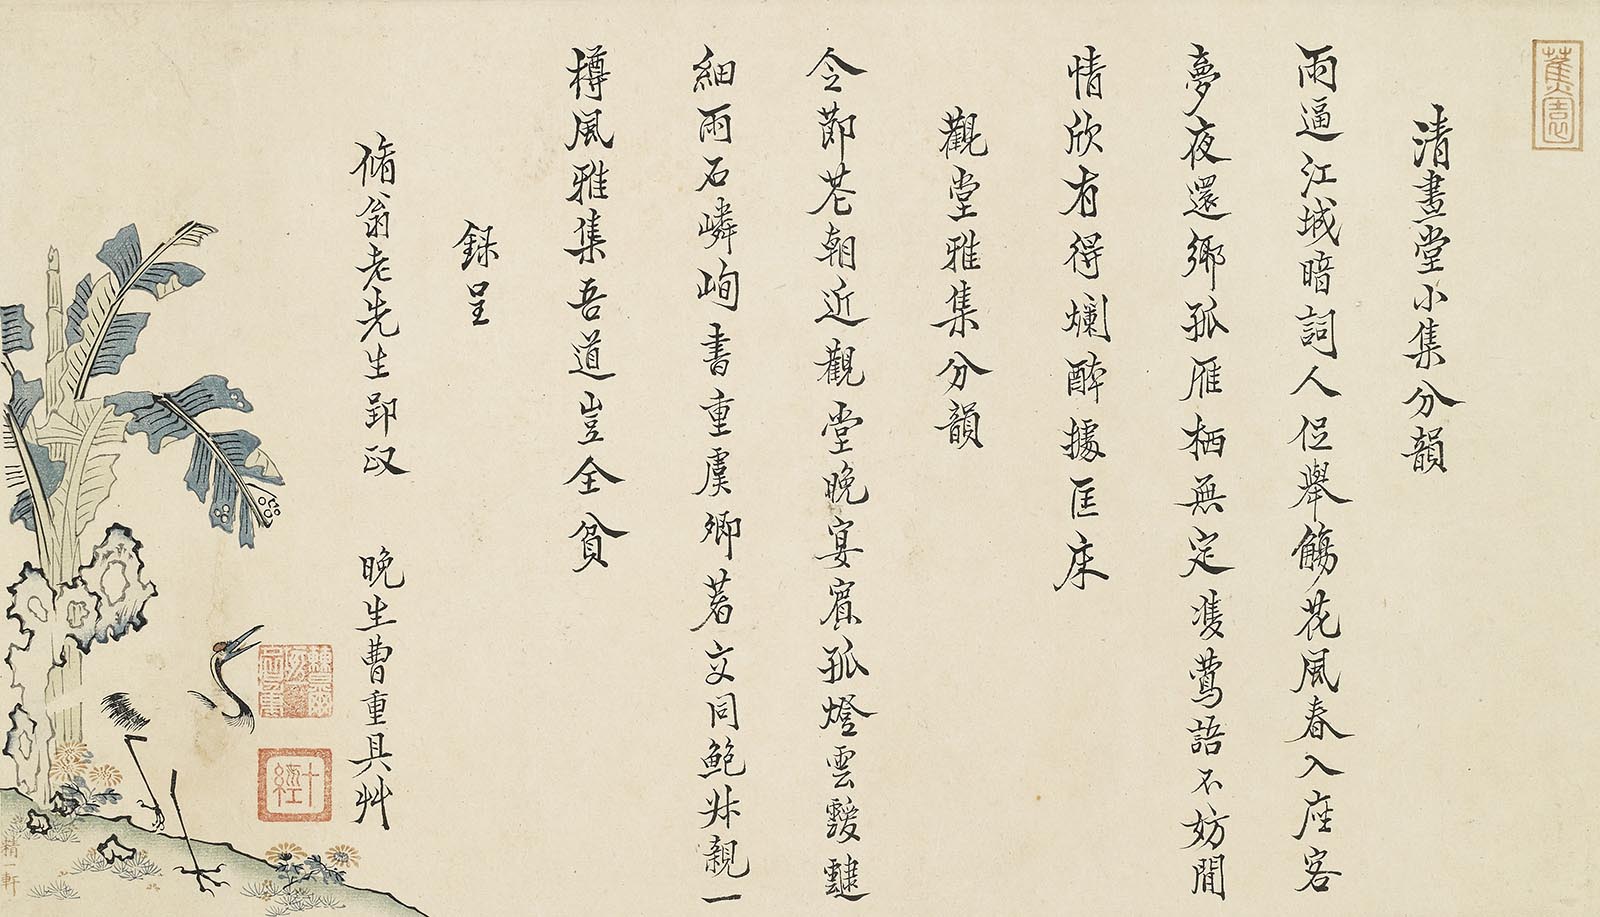 蕉園
清畫堂小集分韻
雨逼江城暗詞人促舉觴花風春入座客
夢夜還鄉孤雁栖無定隻鶯語不妨閒
情欣有得爛醉據匡床
觀堂雅集分韻
令莭芲朝近觀堂晚宴賓孤燈雲靉靆
細雨石嶙峋書重虞卿著交同鮑叔親一
樽風雅集吾道豈全貧
録呈
脩翁老先生郢政 晚生曹重具艸
十經
精一軒